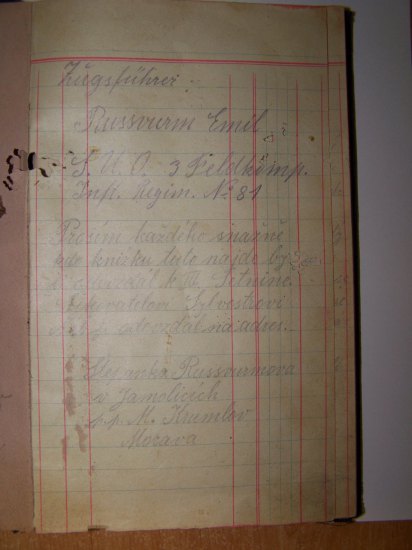 Zugsführer
Russwurm Emil
3 Feldkomp.
Inft. Regim. № 81
Prosím každého snažně
kdo knížku tuto najde by
ji odevzdal k
Sylvestrovi
odevzdal na adres.
Russwurmova
v Jamolicích
p.p. M. Krumlov
Morava